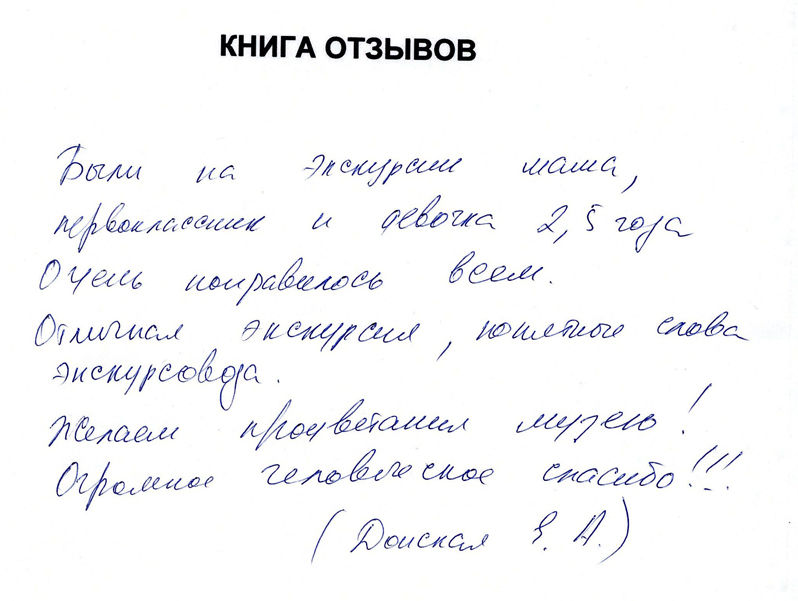 КНИГА ОТЗЫВОВ
Были на экскурсии мама,
первоклассник и девочка 2,5 года
Очень понравилось всем.
Отличная экскурсия, понятные слова
экскурсовода.
Желаем процветания музею!
Огромное человеческое спасибо!!!
(Донская Е. А.)